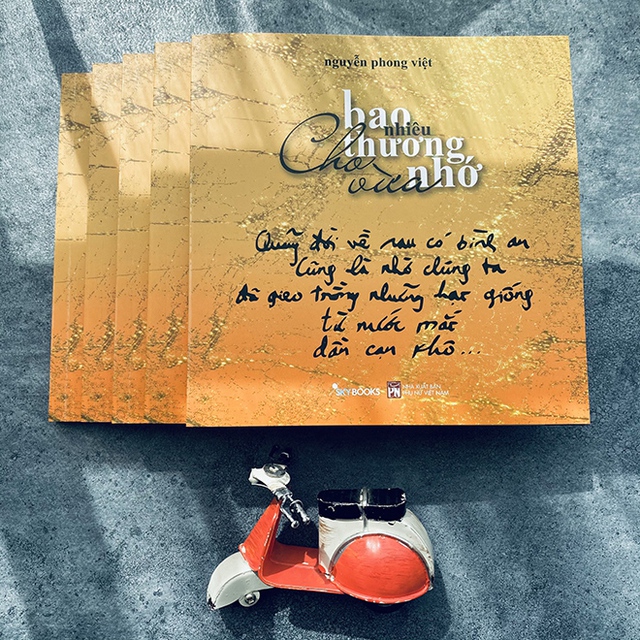 nguyễn phong việt
bao
nhiêu
thương
Cho vừa
nhớ
Quãng đời về sau có bình an
Cũng là nhờ chúng ta
đã gieo trồng những hạt giống
từ nước mắt
dần cạn khô...
SKYBOOKS
PN
NHÀ XUẤT BẢN
PHỤ NỮ VIỆT NAM